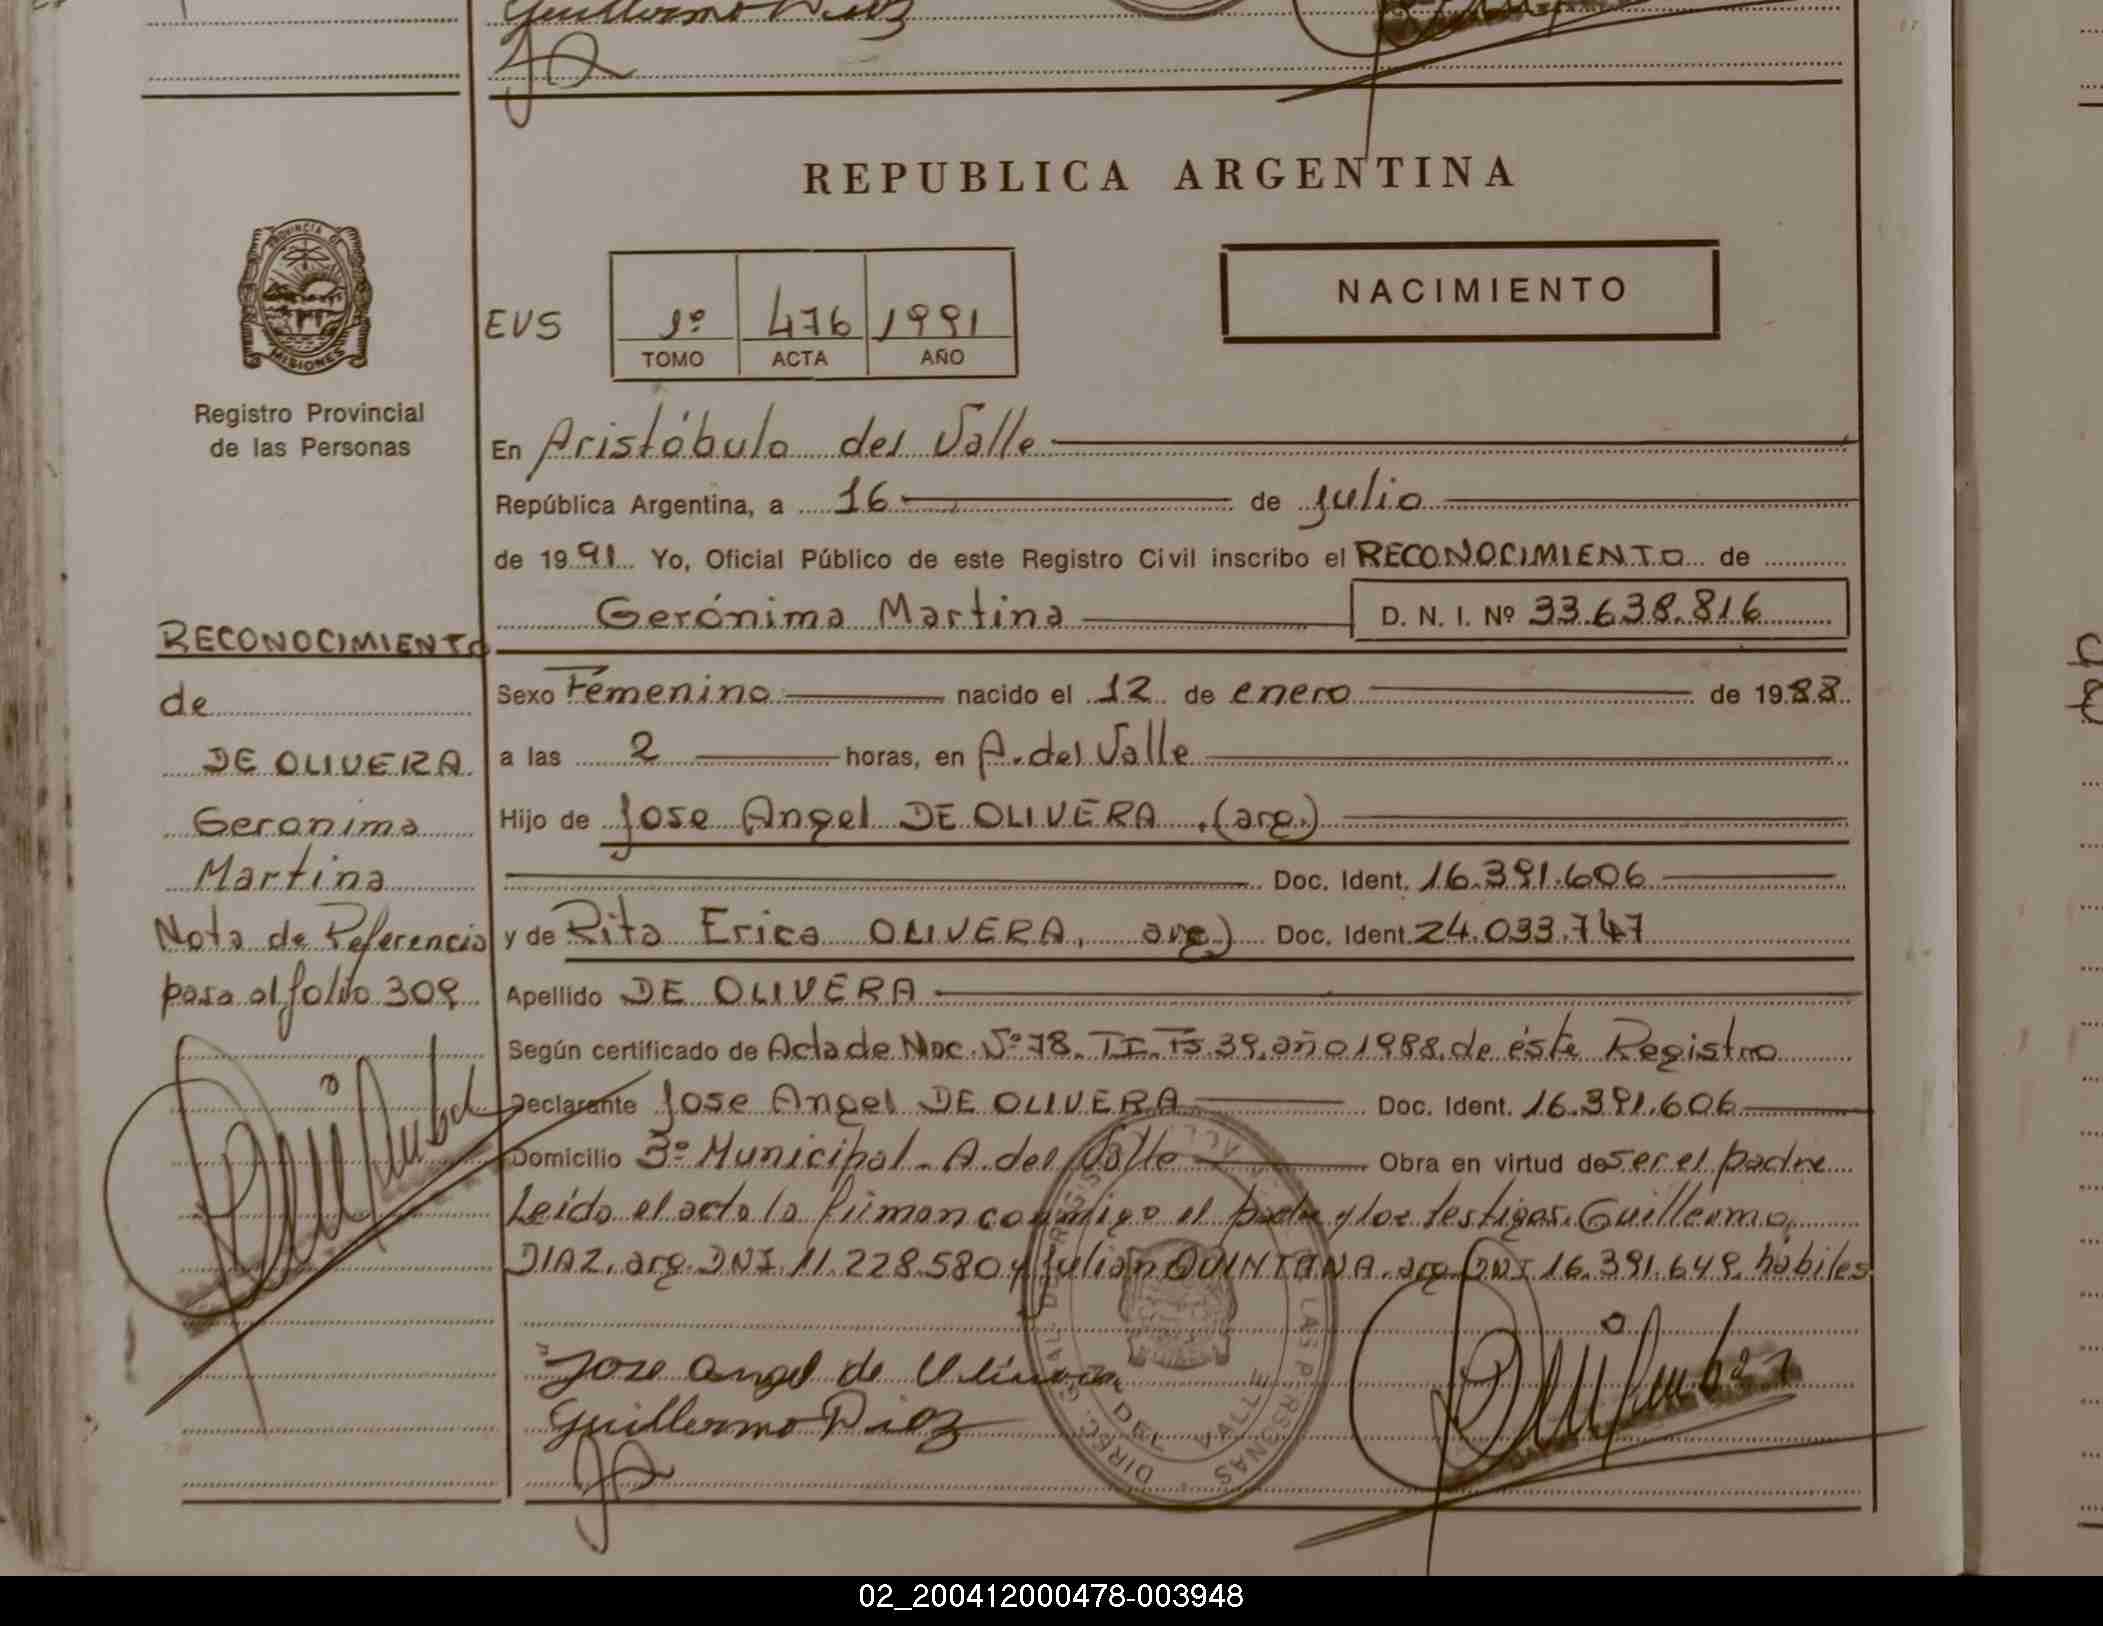 Guillermo Diaz
REPUBLICA ARGENTINA
PROVINCIA DE
MISIONES
Registro Provincial
de las Personas
NACIMIENTO
EVS 1º 476 1991
TOMO ACTA AÑO
En Aristóbulo del Valle
República Argentina, a 16 de julio
de 1991 Yo, Oficial Público de este Registro Civil inscribo el RECONOCIMIENTO de
Gerónima Martina D. N. I. Nº 33.638.816
Sexo Femenino nacido el 12 de enero de 1988
a las 2 horas, en A. del Valle
Hijo de Jose Angel DE OLIVERA (arg.)
Doc. Ident. 16.391.606
y de Rita Erica OLIVERA, arg) Doc. Ident. 24.033.747
Apellido DE OLIVERA
Según certificado de Acta de Nac. Nº 78. TI. Fs 39. año 1988. de éste Registro
Declarante Jose Angel DE OLIVERA Doc. Ident. 16.391.606
Domicilio Bº Municipal - A. del Valle Obra en virtud de ser el padre
Leída el acta la firman conmigo el padre y los testigos. Guillermo
DIAZ. arg. DNI. 11.228.580 y Julián QUINTANA. arg. DNI 16.391.649. hábiles
RECONOCIMIENTO
de
DE OLIVERA
Geronima
Martina
Nota de Referencia
pasa al folio 309
Jose Angel de Olivera
Guillermo Diaz
DEL VALLE
02_200412000478-003948